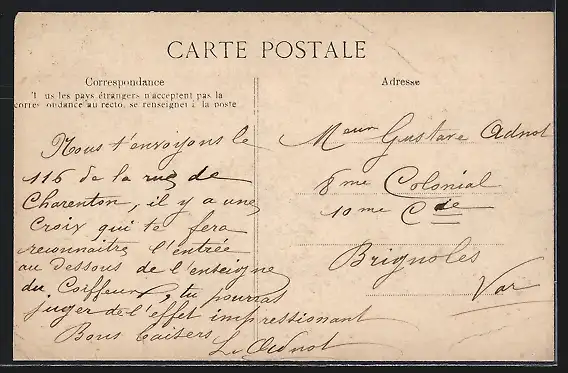 CARTE POSTALE
Correspondance
Tous les pays étrangers n'acceptent pas la
correspondance au recto, se renseigner à la poste
Nous t'envoyons le
116 de la rue de
Charenton, il y a une
Croix qui te fera
reconnaitre l'entrée
au dessous de l'enseigne
du Coiffeur, tu pourras
juger de l'effet impressionant
Bons baisers
L. Adnot
Adresse
Meur Gustave Adnot
8me Colonial
10me Cie
Brignoles
Var